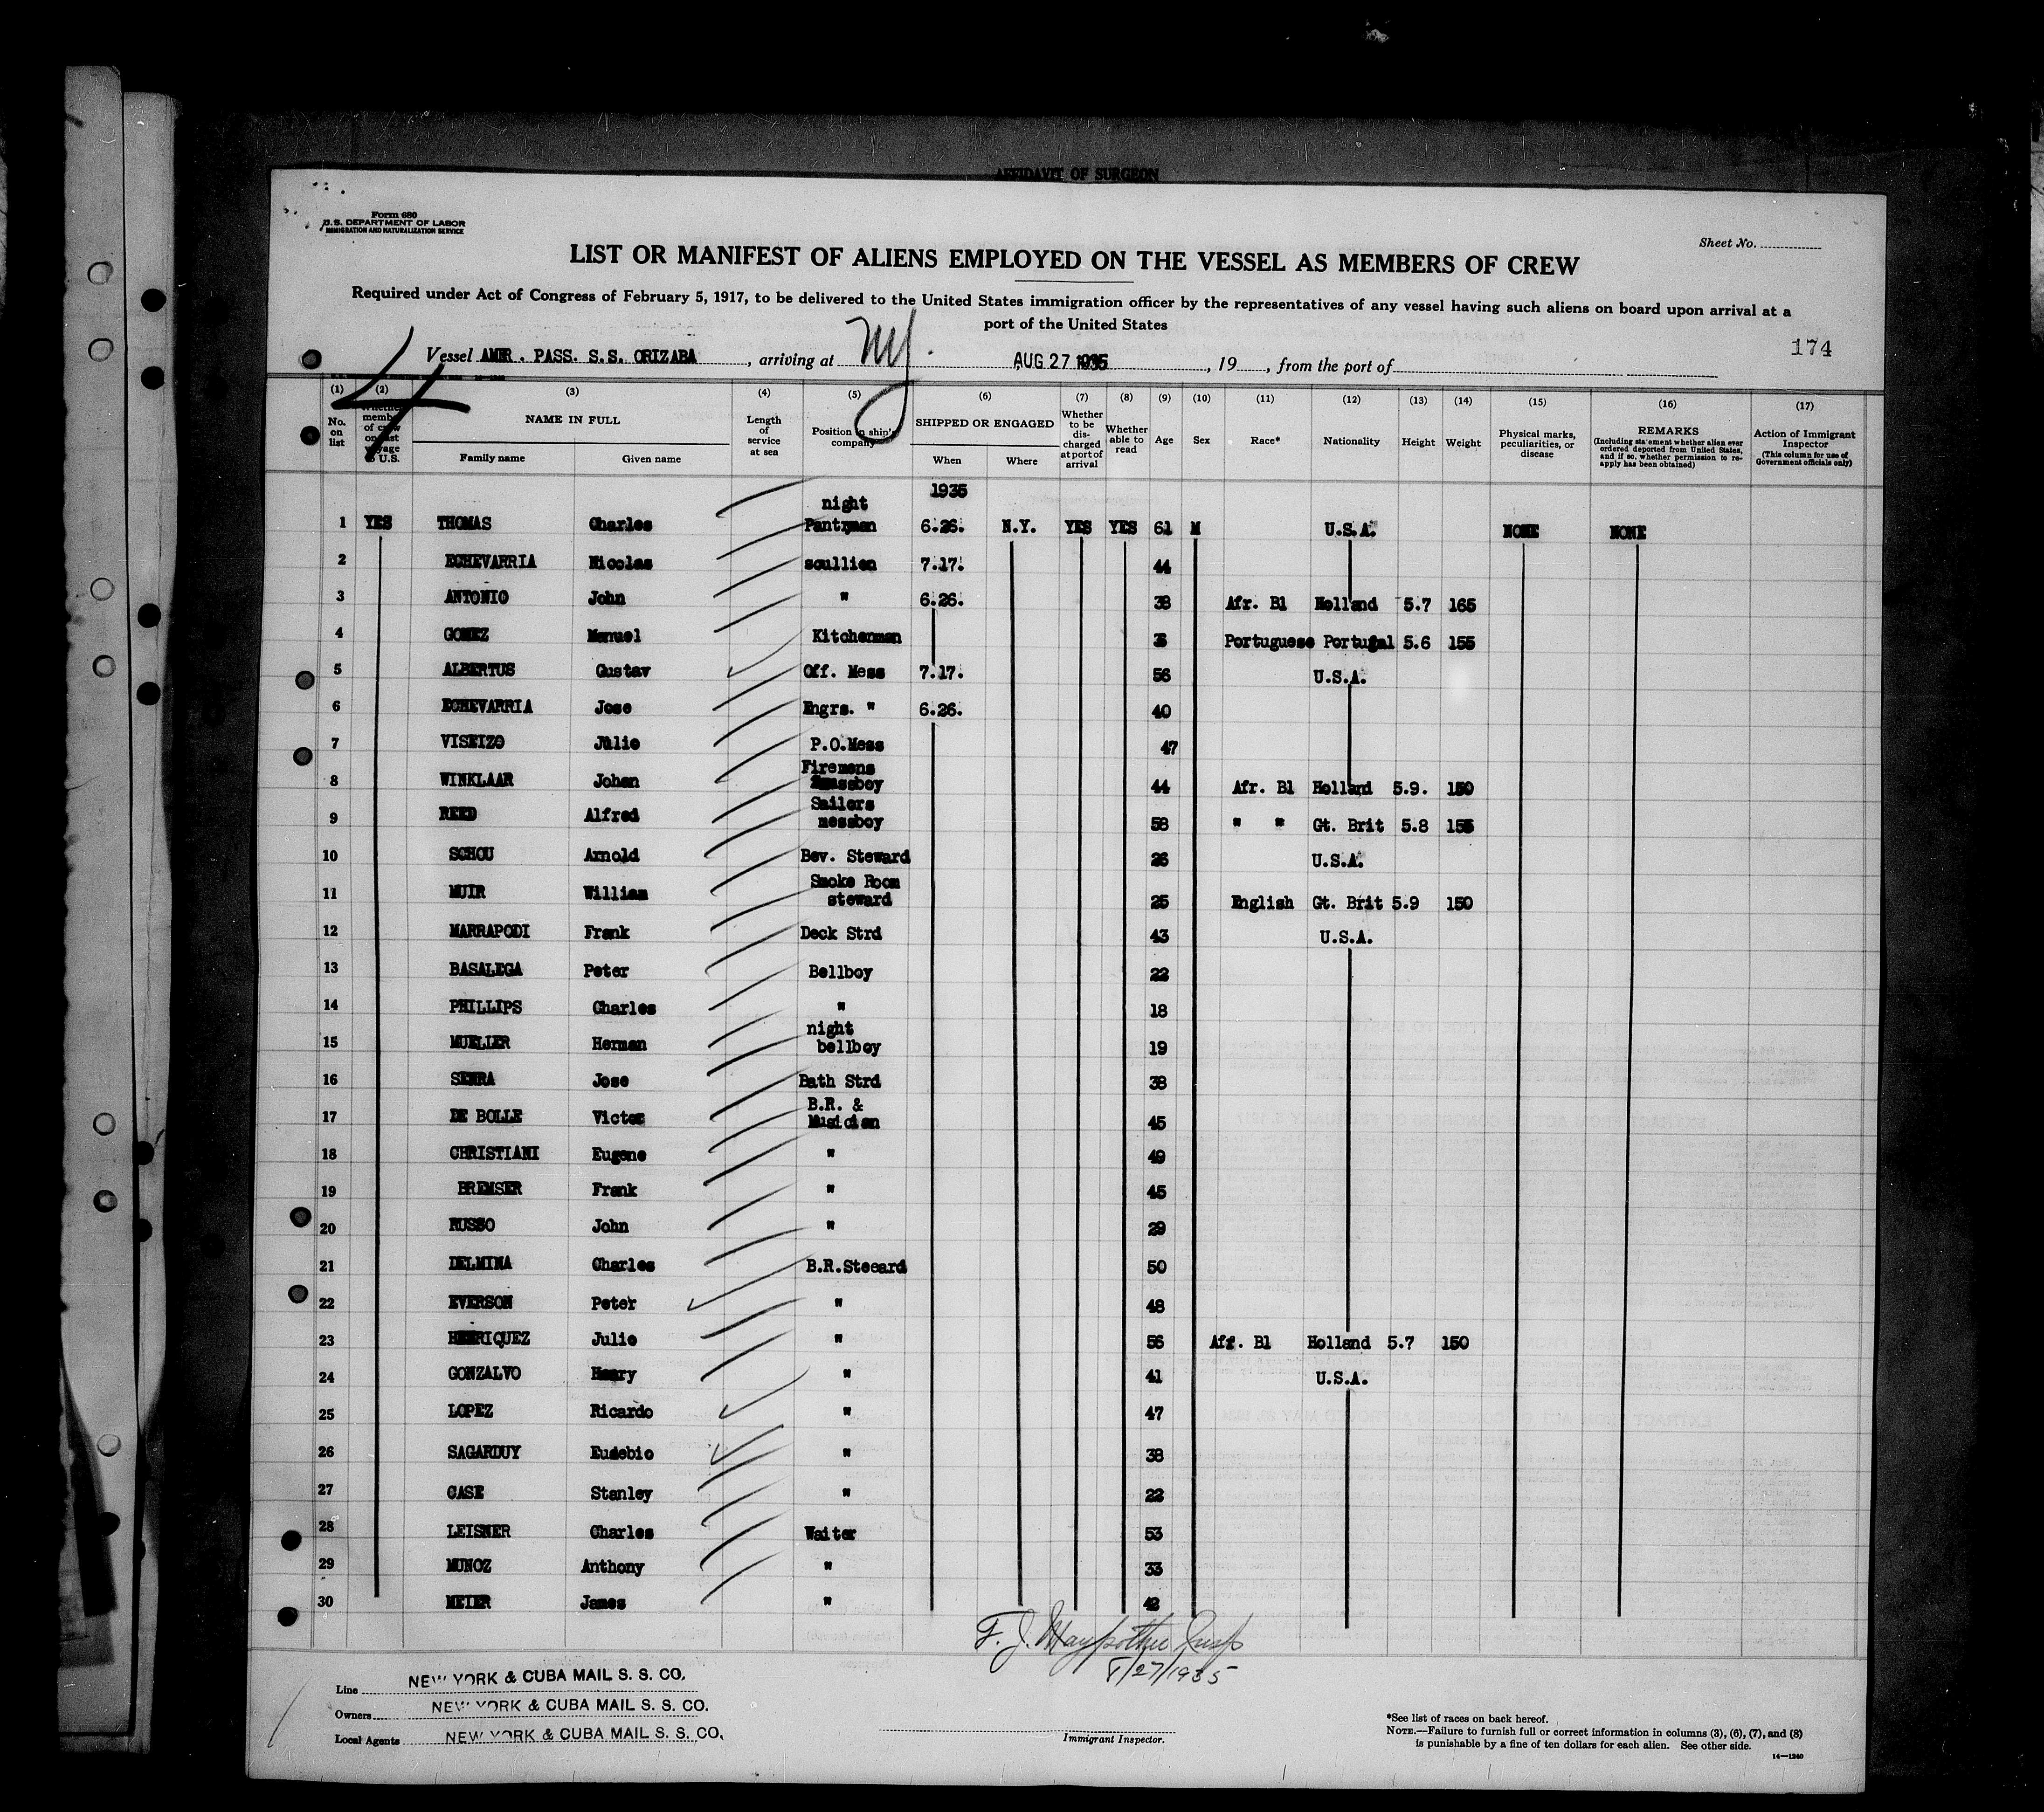 AFFIDAVIT OF SURGEON
Form 680
U.S. DEPARTMENT OF LABOR
IMMIGRATION AND NATURALIZATION SERVICE
Sheet No.
LIST OR MANIFEST OF ALIENS EMPLOYED ON THE VESSEL AS MEMBERS OF CREW
Required under Act of Congress of February 5, 1917, to be delivered to the United States immigration officer by the representatives of any vessel having such aliens on board upon arrival at a
port of the United States
174
4
Vessel AMR. PASS. S.S. ORIZABA, arriving at NY. AUG 27 1935, 19, from the port of
(1) (2) (3) (4) (5) (6) (7) (8) (9) (10) (11) (12) (13) (14) (15) (16) (17)
No. on list
Whether member of crew on last voyage to U.S.
NAME IN FULL
Family name Given name
Length of service at sea
Position in ship's company
SHIPPED OR ENGAGED
When Where
Whether to be discharged at port of arrival
Whether able to read
Age
Sex
Race*
Nationality
Height
Weight
Physical marks, peculiarities, or disease
REMARKS
(Including statement whether alien ever ordered deported from United States, and if so, whether permission to reapply has been obtained)
Action of Immigrant Inspector
(This column for use of Government officials only)
1935
night
1 YES THOMAS Charles Pantryman 6.26. N.Y. YES YES 61 M U.S.A. NONE NONE
2 ECHEVARRIA Nicolas scullion 7.17. 44
3 ANTONIO John " 6.26. 38 Afr. Bl Holland 5.7 165
4 GOMEZ Manuel Kitchenman Portuguese Portugal 5.6 155
5 ALBERTUS Gustav Off. Mess 7.17. 56 U.S.A.
6 ECHEVARRIA Jose Engrs. " 6.26. 40
7 VISEIZO Julio P.O.Mess 47
Firemens
8 WINKLAAR Johan messboy 44 Afr. Bl Holland 5.9. 150
Sailors
9 REED Alfred messboy 58 " " Gt. Brit 5.8 155
10 SCHOU Arnold Bev. Steward 26 U.S.A.
Smoke Room
11 MUIR William steward 25 English Gt. Brit 5.9 150
12 MARRAPODI Frank Deck Strd 43 U.S.A.
13 BASALEGA Peter Bellboy 22
14 PHILLIPS Charles " 18
night
15 MUELLER Herman bellboy 19
16 SERRA Jose Bath Strd 38
B.R. &
17 DE BOLLE Victor Musician 45
18 CHRISTIANI Eugene " 49
19 BREMSER Frank " 45
20 RUSSO John " 29
21 DELMINA Charles B.R.Steeard 50
22 EVERSON Peter " 48
23 HENRIQUEZ Julio " 56 Aff. Bl Holland 5.7 150
24 GONZALVO Henry " 41 U.S.A.
25 LOPEZ Ricardo " 47
26 SAGARDUY Eudebio " 38
27 CASE Stanley " 22
28 LEISNER Charles Waiter 53
29 MUNOZ Anthony " 33
30 MEIER James " 42
F. J. Maypother Insp
8/27/1935
Line NEW YORK & CUBA MAIL S. S. CO.
Owners NEW YORK & CUBA MAIL S. S. CO.
Local Agents NEW YORK & CUBA MAIL S. S. CO.
Immigrant Inspector.
*See list of races on back hereof.
NOTE.—Failure to furnish full or correct information in columns (3), (6), (7), and (8)
is punishable by a fine of ten dollars for each alien. See other side.
14—1240